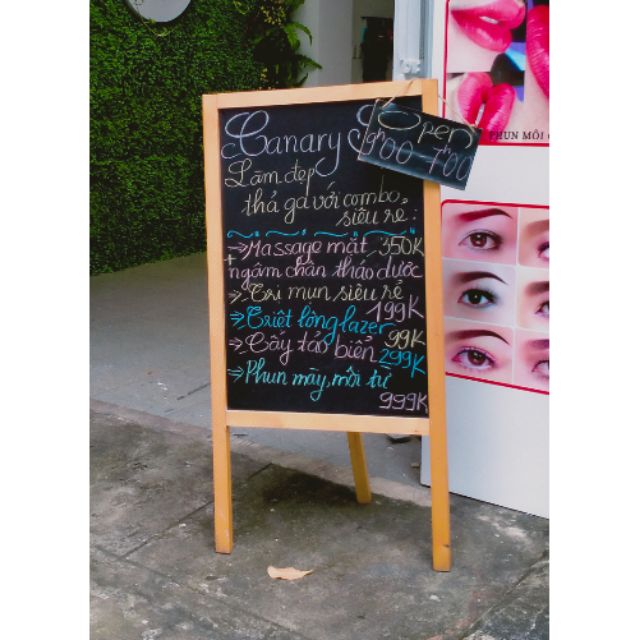 Canary S
Open
9h00 - 7h00
Làm đẹp
thả ga với combo
siêu rẻ :
Massage mặt 350K
+ ngâm chân thảo dược
Trị mụn siêu rẻ
199K
Triệt lông lazer
99K
Cấy tảo biển 299K
Phun mày, môi từ
999K
PHUN MÔI